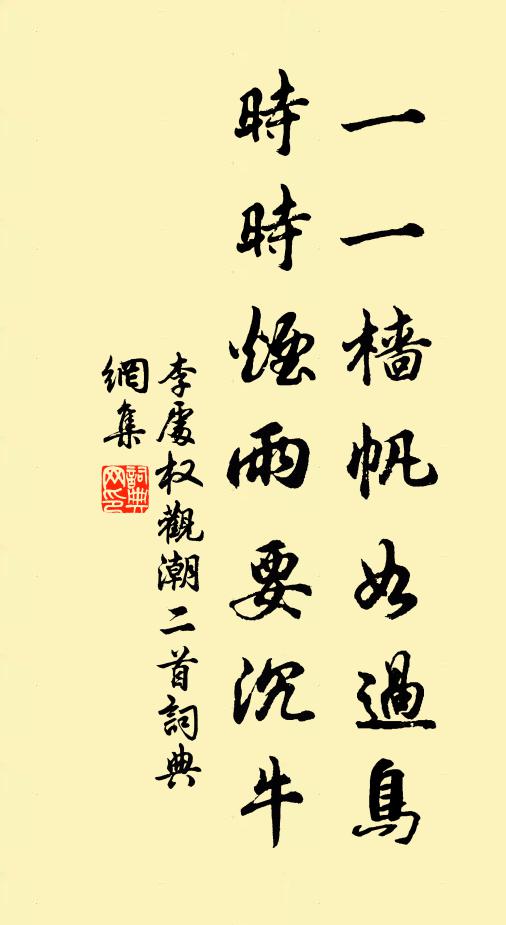 一一檣帆如過鳥
時時煙雨要沉牛
李處权觀潮二首詞典
網集
詞典网印